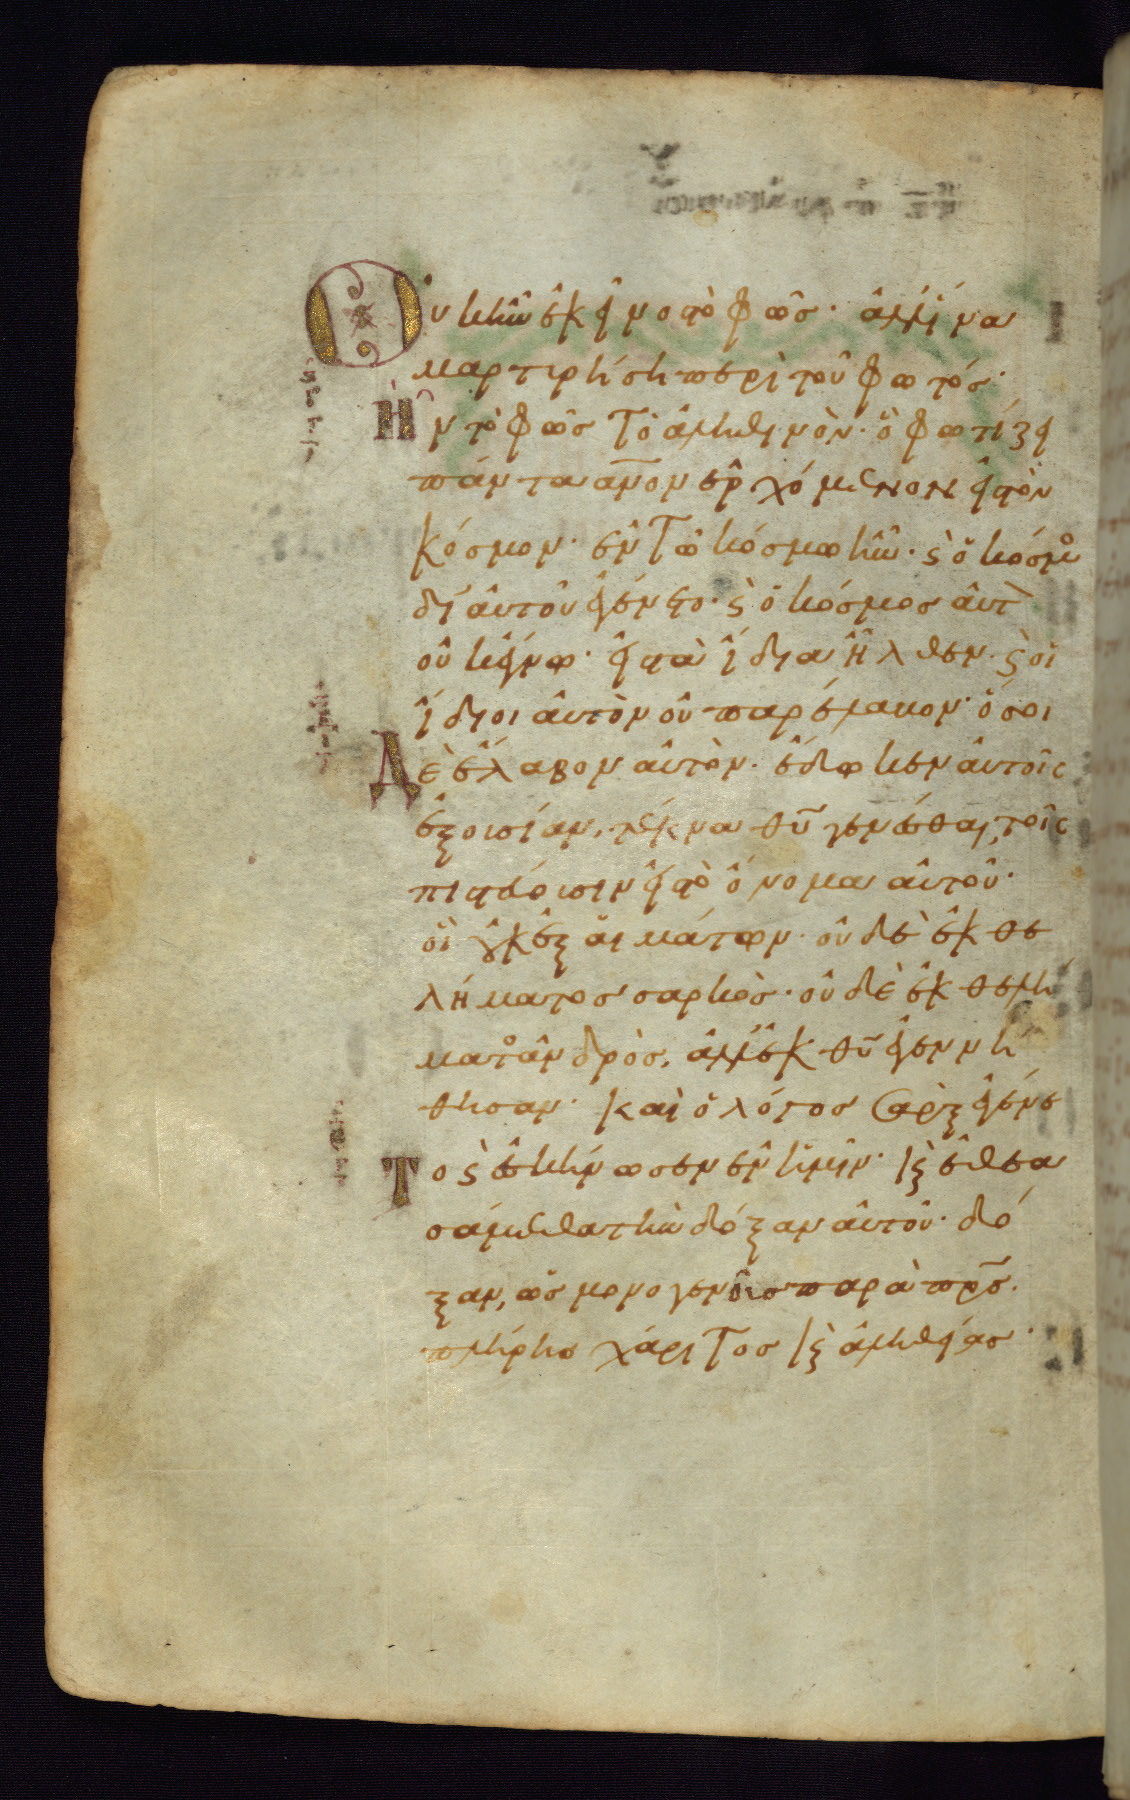 Οὐκ ἦν ἐκεῖνος τὸ φῶς· ἀλλ' ἵνα
μαρτυρήσῃ περὶ τοῦ φωτός·
Ἦν τὸ φῶς τὸ ἀληθινὸν· ὃ φωτίζει
πάντα ἄνον ἐρχόμενον εἰς τὸν
κόσμον· ἐν τῷ κόσμῳ ἦν· ϗ ὁ κόσμος
δι' αὐτοῦ ἐγένετο· ϗ ὁ κόσμος αὐτὸν
οὐκ ἔγνω· εἰς τὰ ἴδια ἦλθεν· ϗ οἱ
ἴδιοι αὐτὸν οὐ παρέλαβον· ὅσοι
Δὲ ἔλαβον αὐτὸν· ἔδωκεν αὐτοῖς
ἐξουσίαν, τέκνα θῦ γενέσθαι, τοῖς
πιστεύουσιν εἰς τὸ ὄνομα αὐτοῦ·
οἳ οὐκ ἐξ αἱμάτων· οὐδὲ ἐκ θε
λήματος σαρκὸς· οὐδὲ ἐκ θελή
ματος ἀνδρὸς, ἀλλ' ἐκ θῦ ἐγεννή
θησαν· καὶ ὁ λόγος σὰρξ ἐγένε
Το ϗ ἐσκήνωσεν ἐν ἡμῖν· ϗ ἐθεα
σάμεθα τὴν δόξαν αὐτοῦ· δό
ξαν, ὡς μονογενοῦς παρὰ πρς·
πλήρης χάριτος ϗ ἀληθείας·